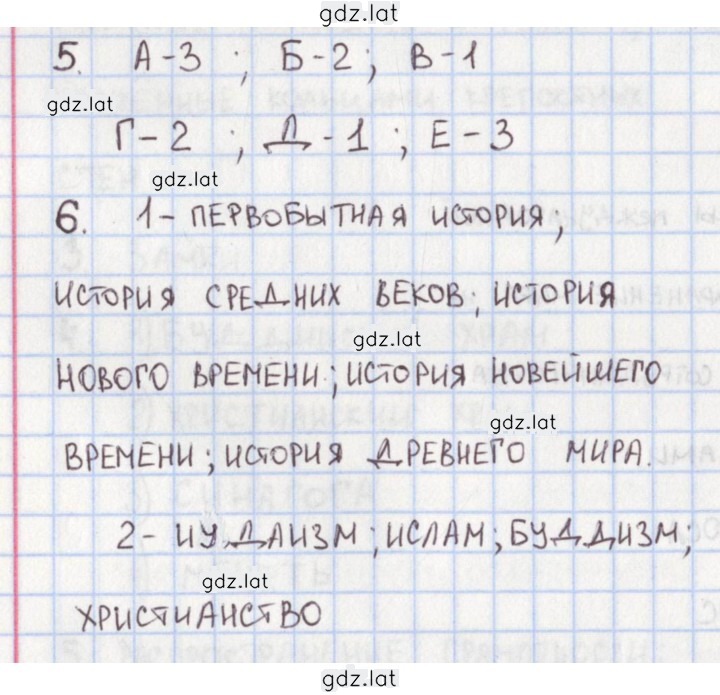 gdz.lat
5. А-3 ; Б-2; В-1
gdz.lat
Г-2 ; Д-1 ; Е-3
gdz.lat
6. 1- ПЕРВОБЫТНАЯ ИСТОРИЯ,
ИСТОРИЯ СРЕДНИХ ВЕКОВ, ИСТОРИЯ
gdz.lat
НОВОГО ВРЕМЕНИ; ИСТОРИЯ НОВЕЙШЕГО
gdz.lat
ВРЕМЕНИ; ИСТОРИЯ ДРЕВНЕГО МИРА.
2- ИУДАИЗМ; ИСЛАМ; БУДДИЗМ;
gdz.lat
ХРИСТИАНСТВО
gdz.lat